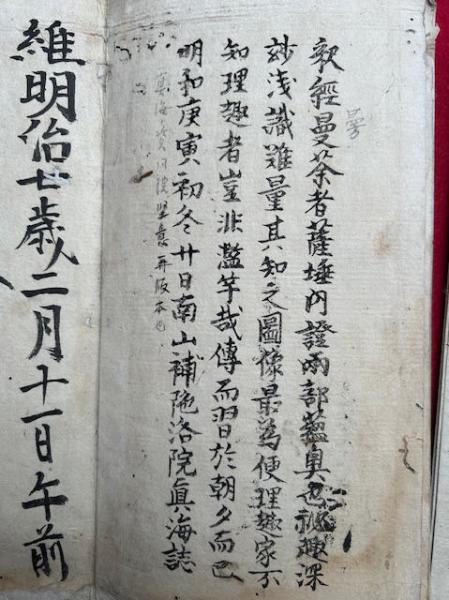 歟經曼荼者薩埵内證兩部蘊奥也祕趣深
曼
妙浅識難量其知之圖像最為便理趣家不
知理趣者豈非濫竽哉傳而習於朝夕而已
明和庚寅初冬廿日南山補陁洛院眞海誌
再版本也
維明治七歳二月十一日午前